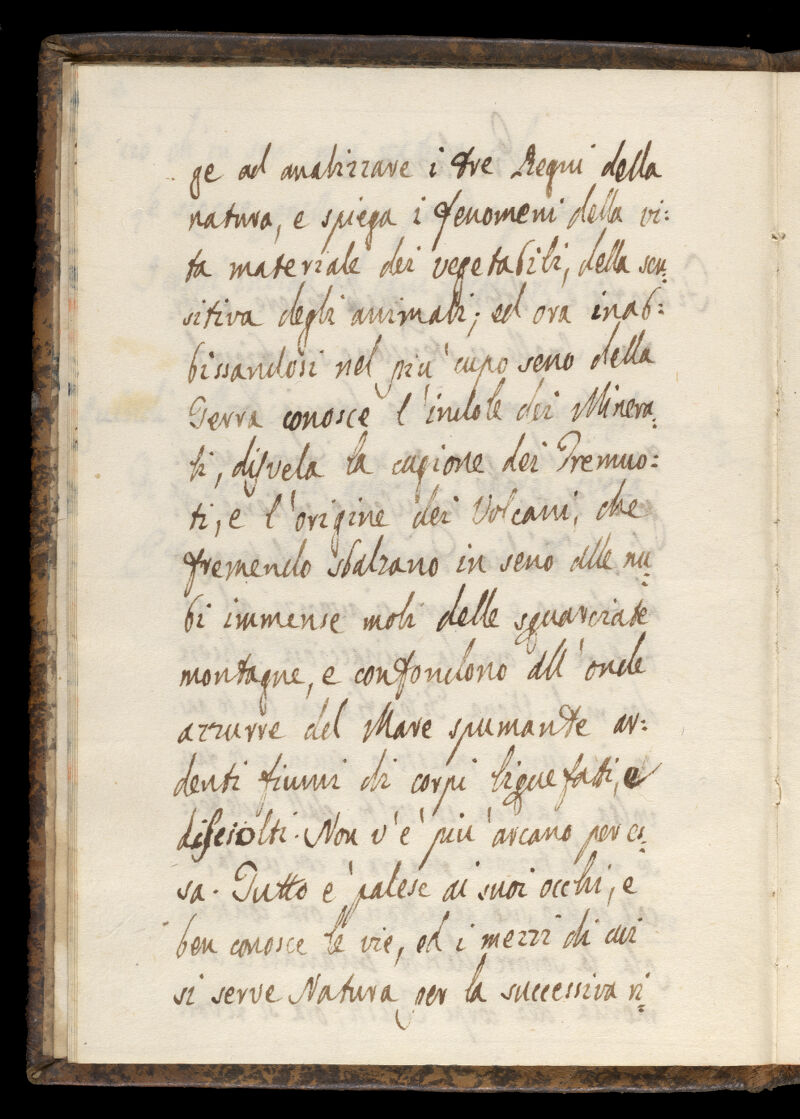 ge ad analizzare i tre Regni della
natura, e spiega i fenomeni della vi:
ta materiale dei vegetabili, della sen:
sitiva degli animali; ed ora inab:
bissandosi nel più cupo seno della
Terra conosce l'indole dei Minera:
li, disvela la cagione dei Tremuo:
ti, e l'origine dei Volcani, che
fremendo sbalzano in seno alle nu:
bi immense moli delle sguarciate
montagne, e confondono all'onde
azzurre del Mare spumante ar:
denti fiumi di corpi liquefatti, e
disciolti. Non v'è più arcano per es:
sa. Tutto è palese ai suoi occhi, e
ben conosce le vie, ed i mezzi di cui
si serve Natura per la successiva ri: